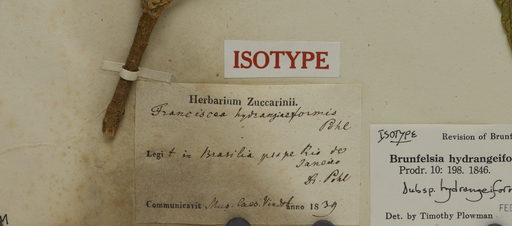 ISOTYPE
Herbarium Zuccarinii.
Franciscea hydrangeaeformis
Pohl
Legit in Brasilia prope Rio de
Janeiro
Dr. Pohl
Communicavit Mus. Caes. Vind. anno 1839
ISOTYPE Revision of Brunf
Brunfelsia hydrangeifor
Prodr. 10: 198. 1846.
subsp. hydrangeiform
FE
Det. by Timothy Plowman
M